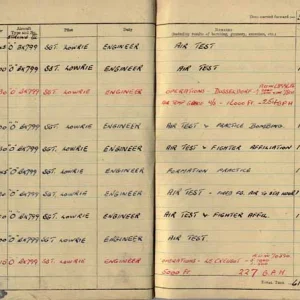 Time carried forward
Aircraft Type and No. Pilot Duty REMARKS
(Including results of bombing, gunnery, exercises, etc.)
"O" BK799 SGT. LOWRIE ENGINEER AIR TEST
"O" BK799 SGT. LOWRIE ENGINEER AIR TEST
"O" BK799 SGT. LOWRIE ENGINEER OPERATIONS - DUSSELDORF
"O" BK799 SGT. LOWRIE ENGINEER AIR TEST & PRACTICE BOMBING
"O" BK799 SGT. LOWRIE ENGINEER AIR TEST & FIGHTER AFFILIATION
"O" BK799 SGT. LOWRIE ENGINEER FORMATION PRACTICE
"O" BK799 SGT. LOWRIE ENGINEER AIR TEST
"O" BK799 SGT. LOWRIE ENGINEER AIR TEST & FIGHTER AFFIL.
"O" BK799 SGT. LOWRIE ENGINEER AIR TEST
"O" BK799 SGT. LOWRIE ENGINEER OPERATIONS - LE CREUSOT
5000 FT. 227 G.P.H.
TOTAL TIME